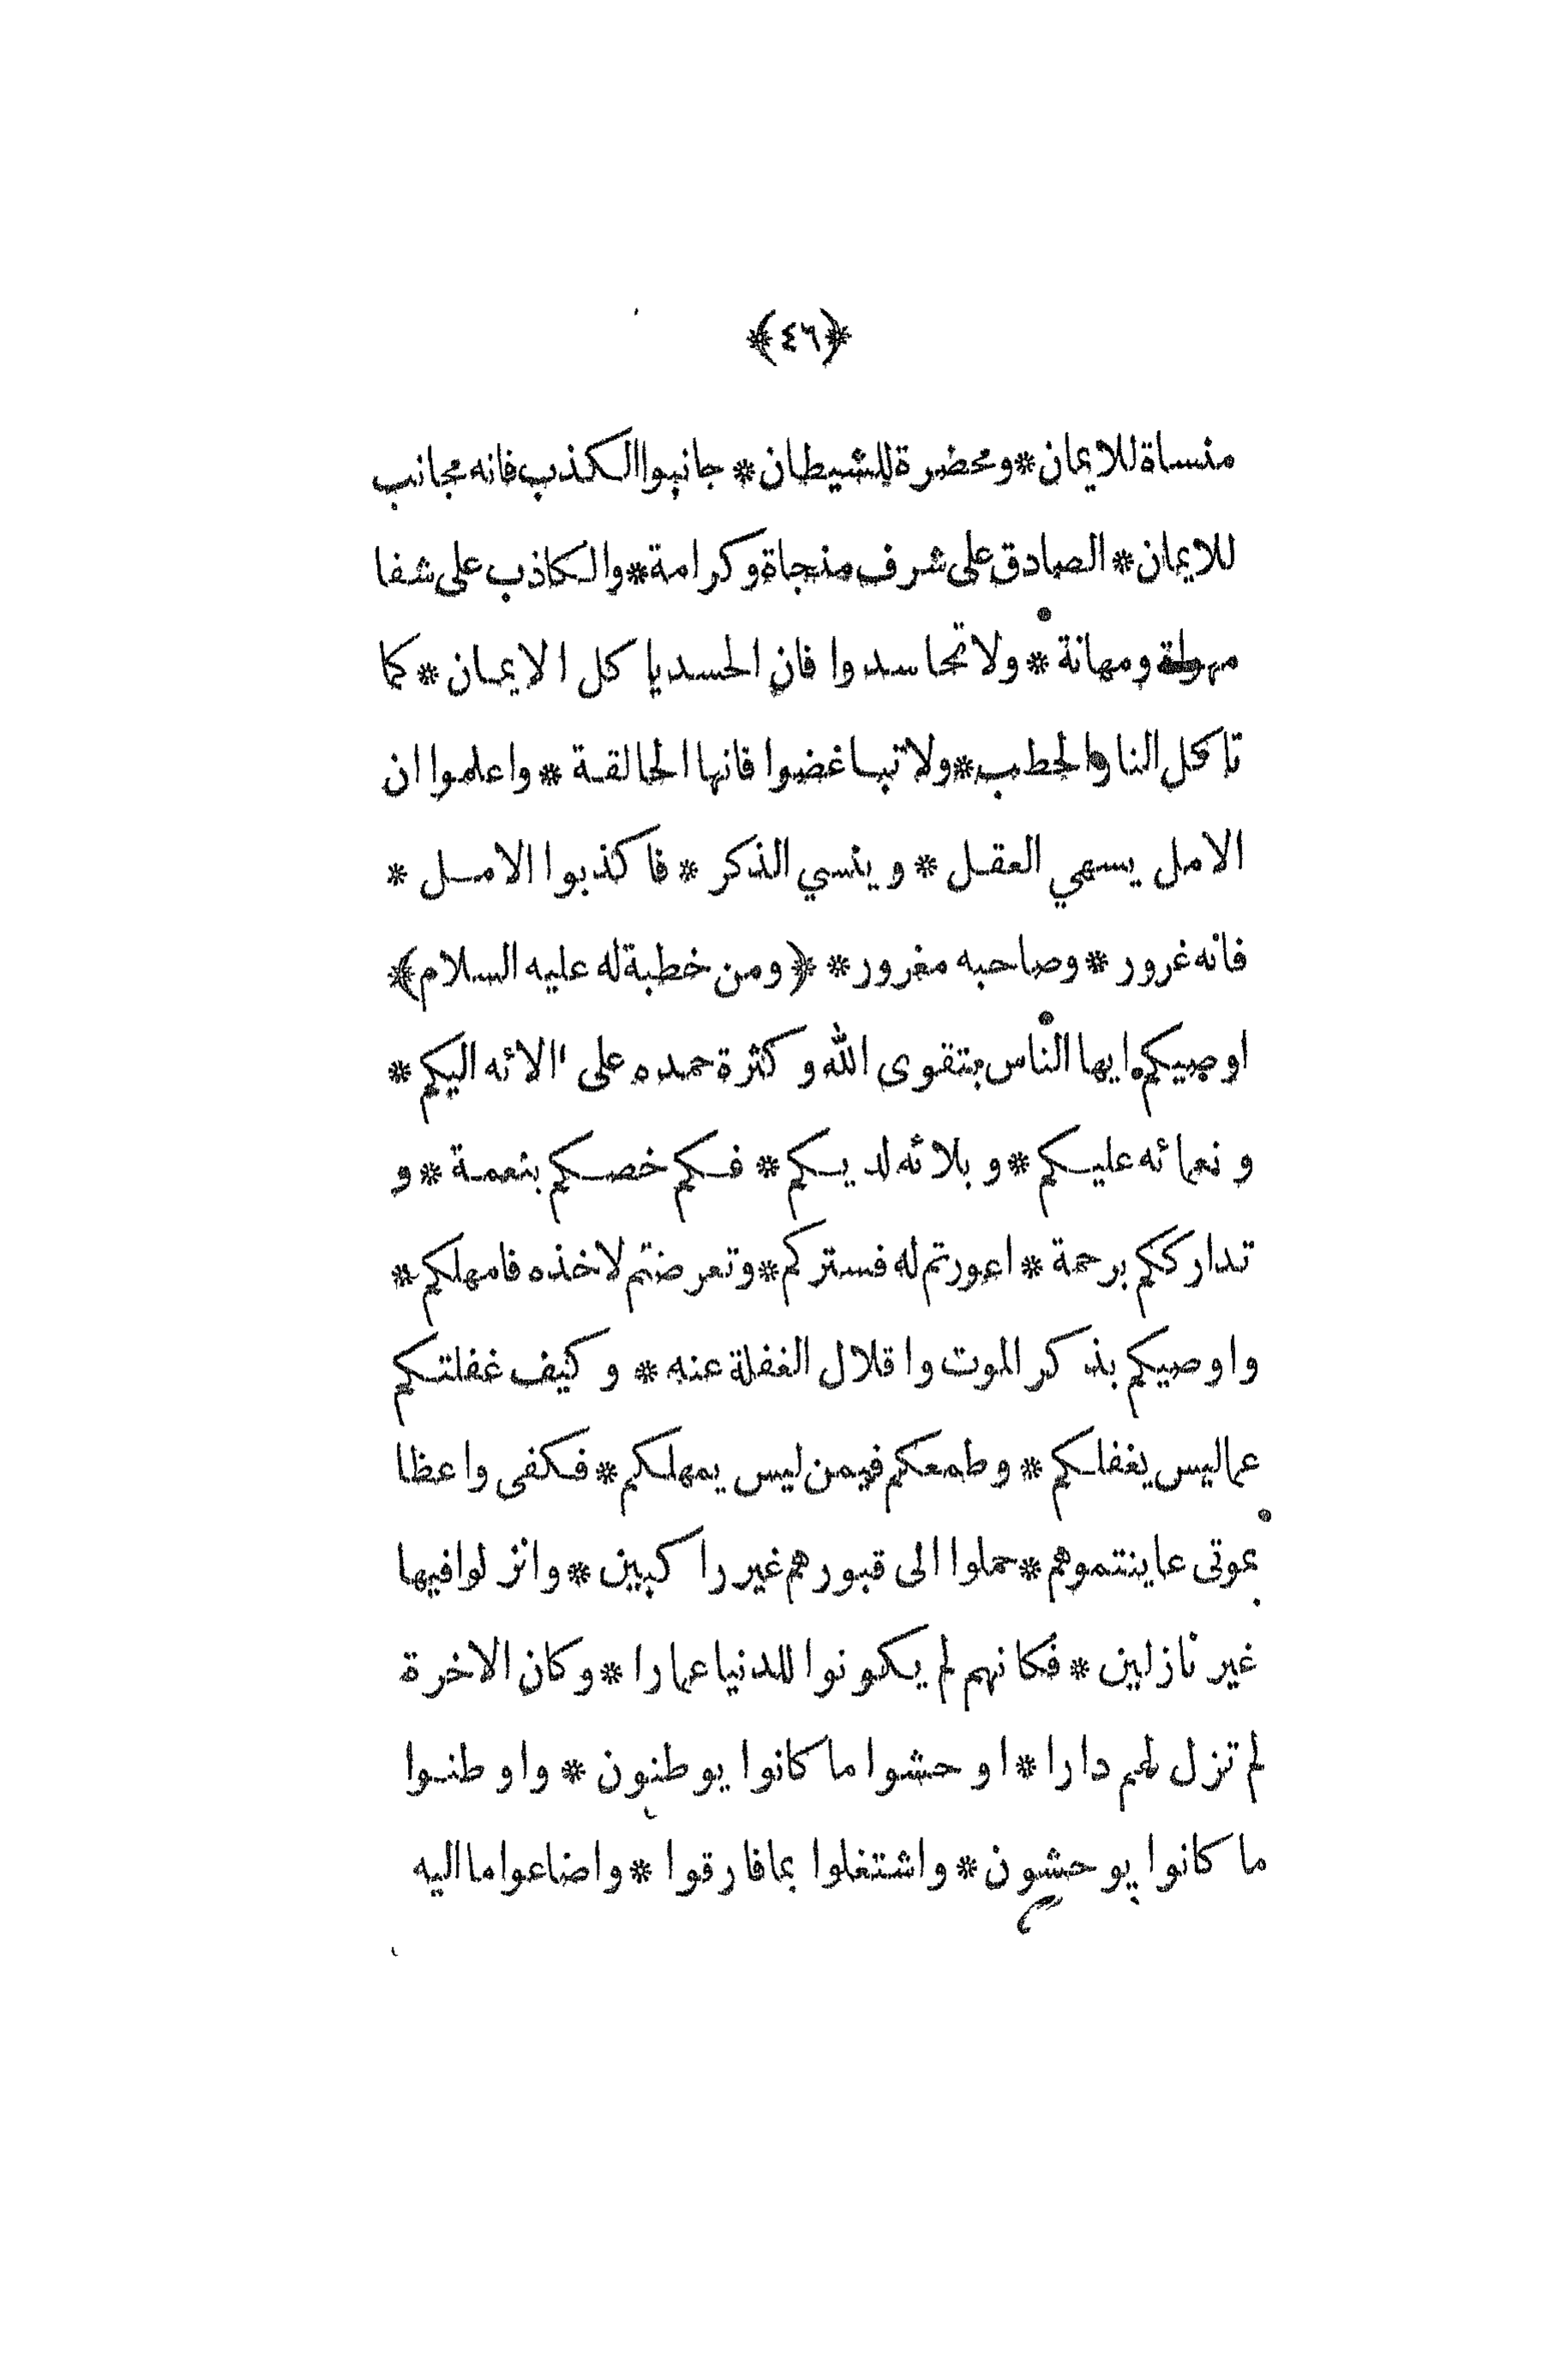 ﴿٤٦﴾
منساة للايمان * ومحضرة للشيطان * جانبوا الكذب فانه مجانب
للايمان * الصادق على شرف منجاة وكرامة * والكاذب على شفا
ومهانة * ولا تحاسدوا فان الحسد يا كل الايمان * كما
تاكل النار الحطب * ولا تباغضوا فانها الحالقة * واعلموا ان
الامل يسهي العقل * وينسي الذكر * فاكذبوا الامل *
فانه غرور * وصاحبه مغرور * ﴿ومن خطبة له عليه السلام﴾
اوصيكم ايها الناس بتقوى الله وكثرة حمده على الائه اليكم *
ونعمائه عليكم * وبلائه لديكم * فكم خصكم بنعمة * و
تدارككم برحمة * اعورتم له فستركم * وتعرضتم لاخذه فامهلكم *
واوصيكم بذكر الموت واقلال الغفلة عنه * وكيف غفلتكم
عما ليس يغفلكم * وطمعكم فيمن ليس يمهلكم * فكفى واعظا
بموتى عاينتموهم * حملوا الى قبورهم غير راكبين * وانزلوا فيها
غير نازلين * فكانهم لم يكونوا للدنيا عمارا * وكان الاخرة
لم تزل لهم دارا * اوحشوا ما كانوا يوطنون * واوطنوا
ما كانوا يوحشون * واشتغلوا بما فارقوا * واضاعوا ما اليه